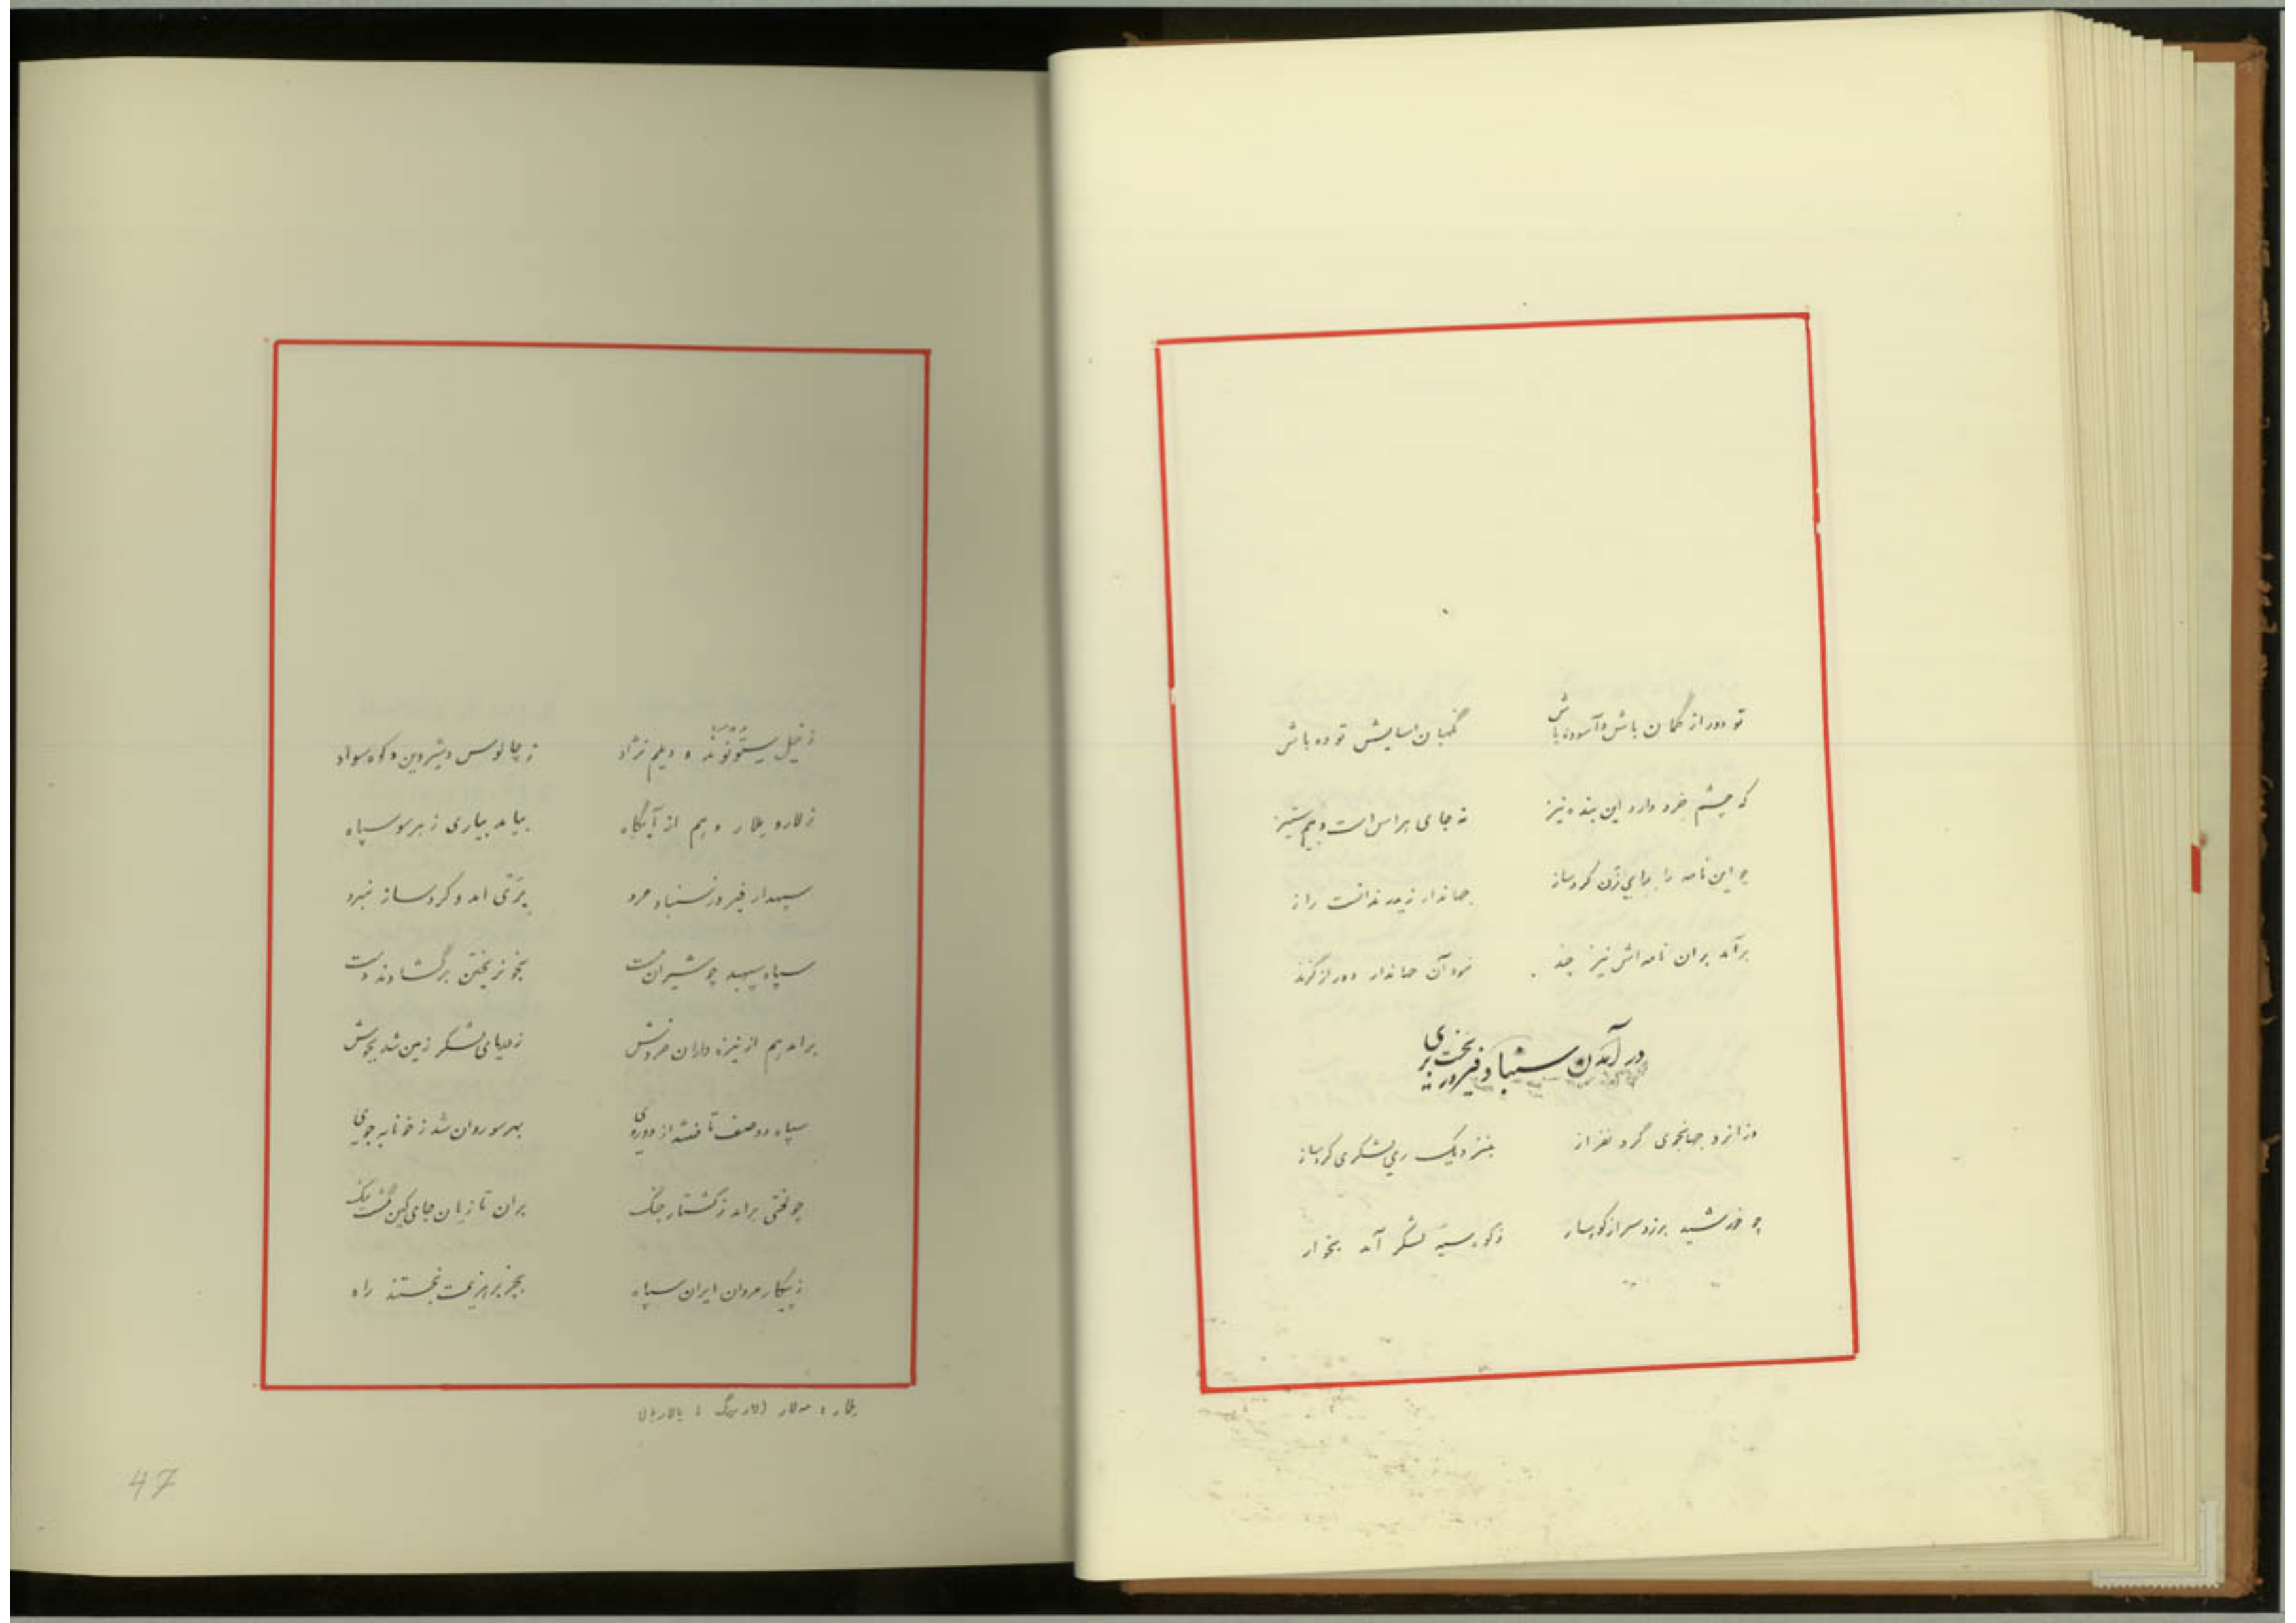 تو دور از گمان باش و آسوده باش نگهبان آسایش توده باش
که چشم خرد دارد این بنده نیز نه جای هراس است و بیم ستیز
چو این نامه را برای زن کرد ساز جهاندار زیدر ندانست راز
برآمد بران نامه اش نیز چند نبود آن جهاندار دور از گزند
در آمدن سنباد فیروز بخت بری
وزانرو جهانجوی گرد نفراز بنزدیک ری لشکری کرد ساز
چو خورشید برزد سر از کوهسار ز کوه سیه لشکر آمد بخوار
ز خیل ستوند و دیلم نژاد ز چالوس و شیروین و کوه سواد
ز لارو یلار و هم از آبگاه بیامد بیاری ز هر سو سپاه
سپهدار فیروز سنباد مرد بری آمد و کرد ساز نبرد
سپاه سپهبد چو شیران مست بخونریختن برگشادند دست
برآمد هم از نیزه داران خروش ز دریای لشکر زمین شد بجوش
سپاه دو صف تا فتند از دوروی بهر سو روان شد ز خونابه جوی
چو لختی برآمد ز کشتار جنگ بران تازیان جای کین گشت تنگ
ز پیکار مردان ایران سپاه بجز بر هزیمت نجستند راه
47